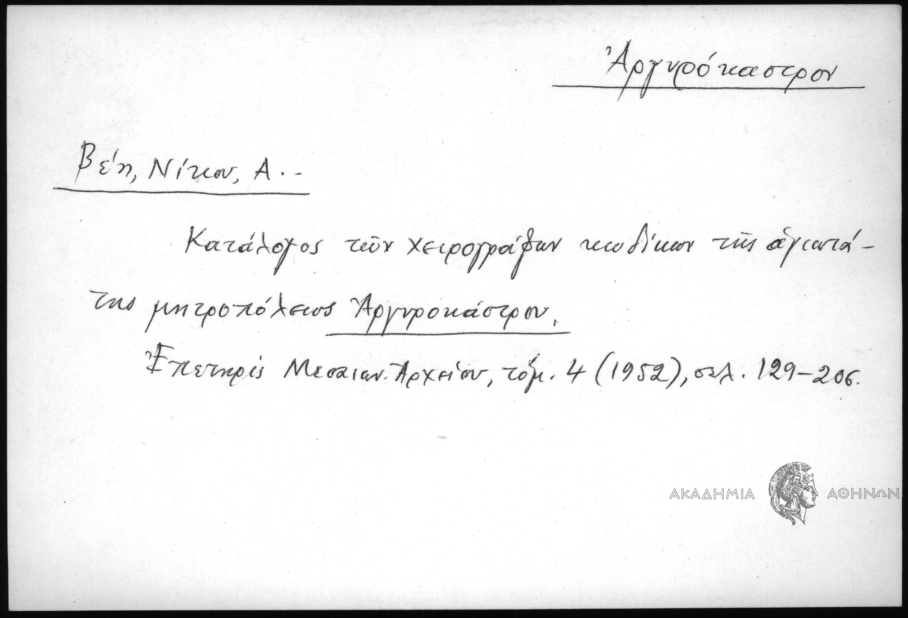 Ἀργυρόκαστρον
Βέη, Νίκου, Α. -
Κατάλογος τῶν χειρογράφων κωδίκων τῆς ἁγιωτά-
της μητροπόλεως Ἀργυροκάστρου.
Ἐπετηρὶς Μεσαιων. Ἀρχείου, τόμ. 4 (1952), σελ. 129-206.
ΑΚΑΔΗΜΙΑ ΑΘΗΝΩΝ